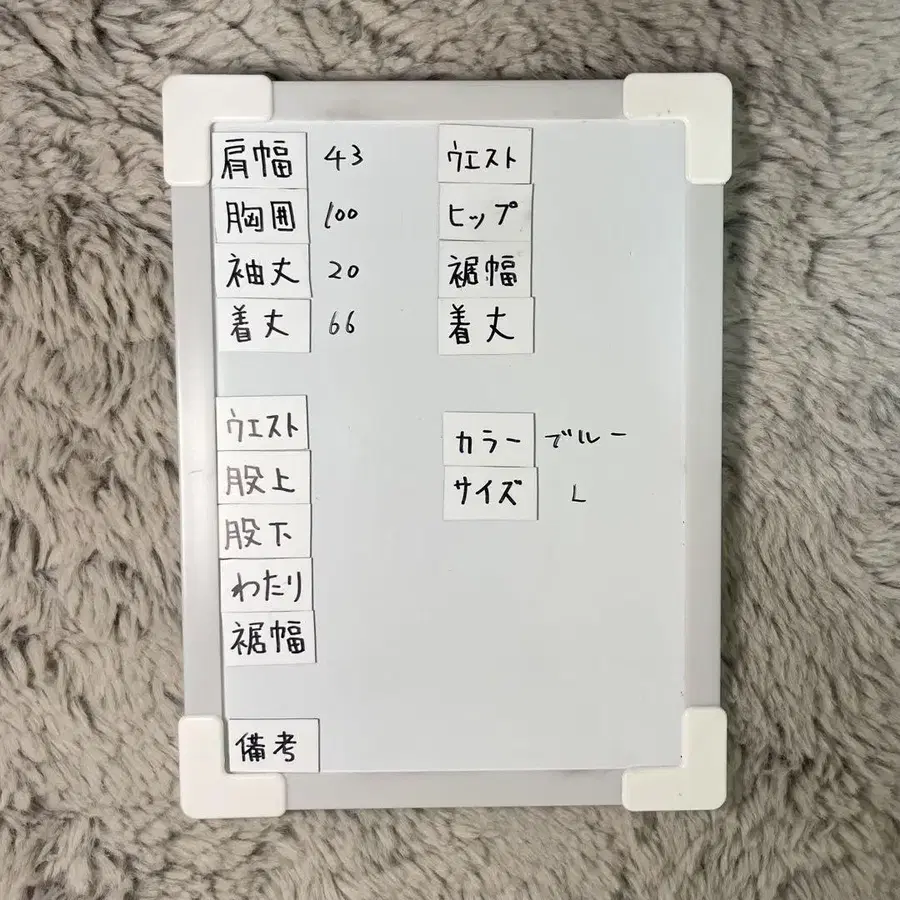 肩幅 43
胸囲 100
袖丈 20
着丈 66
ウエスト
股上
股下
わたり
裾幅
備考
ウエスト
ヒップ
裾幅
着丈
カラー ブルー
サイズ L